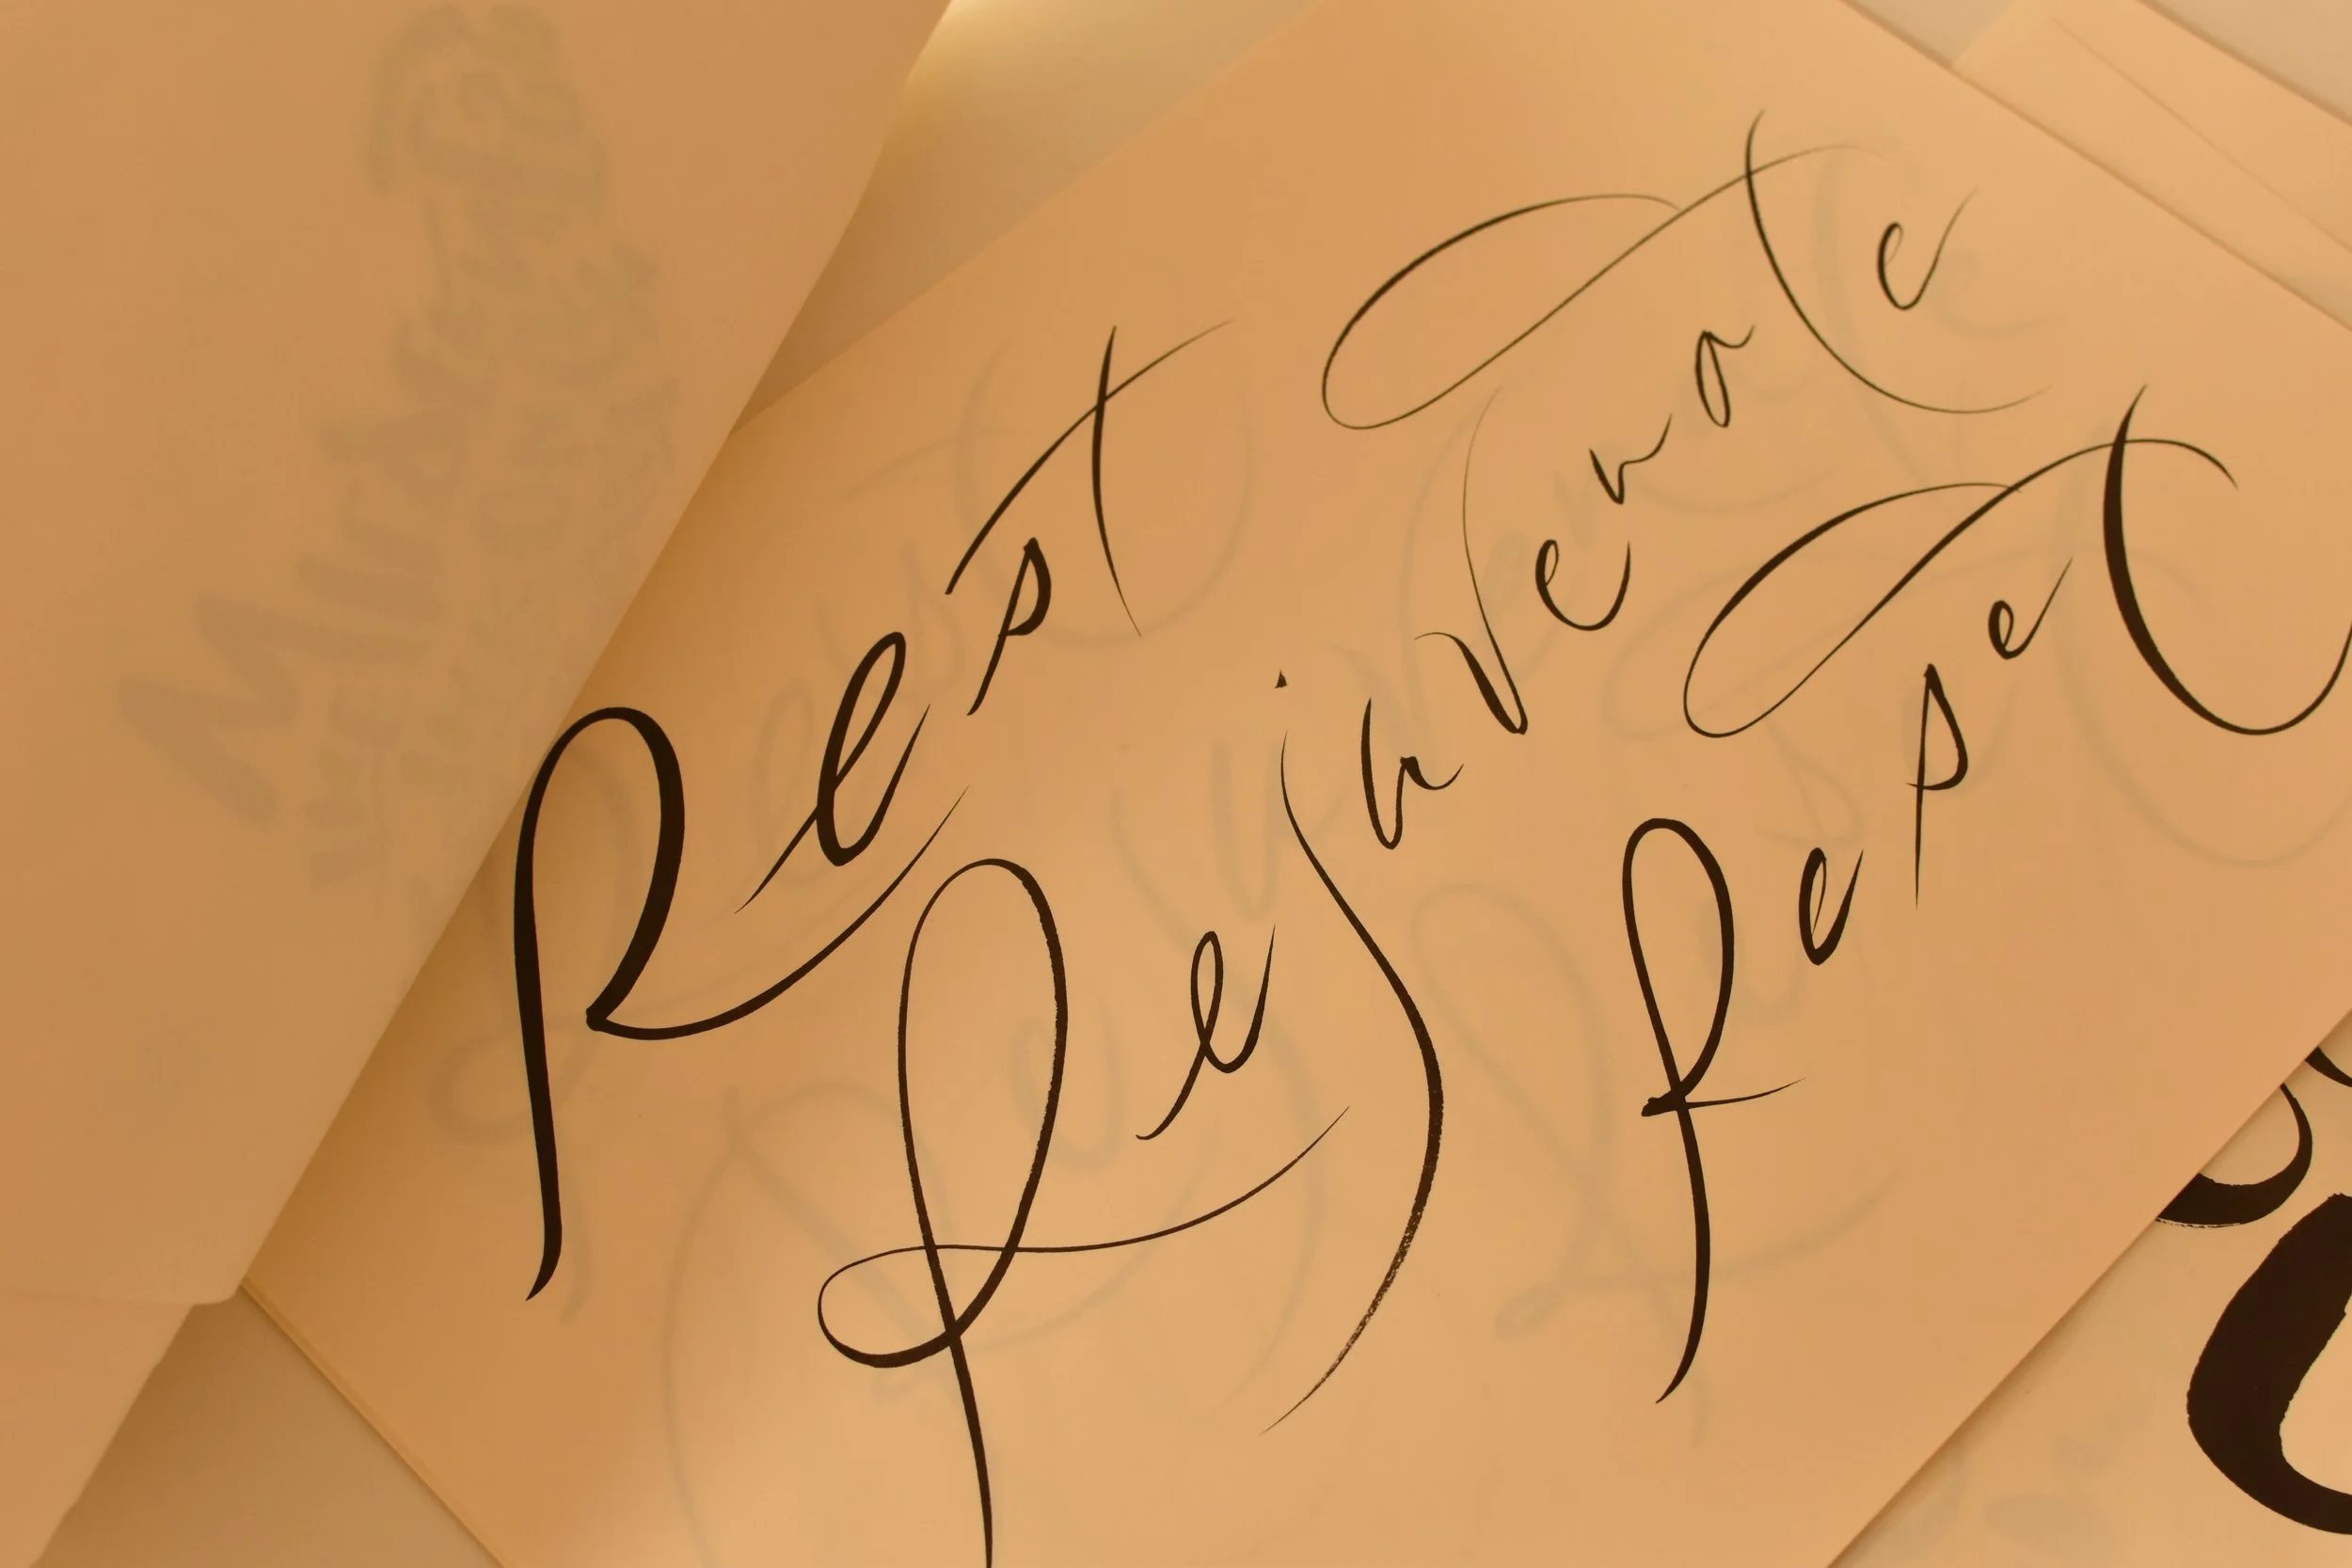 Rest
Rejuvenate
Reset